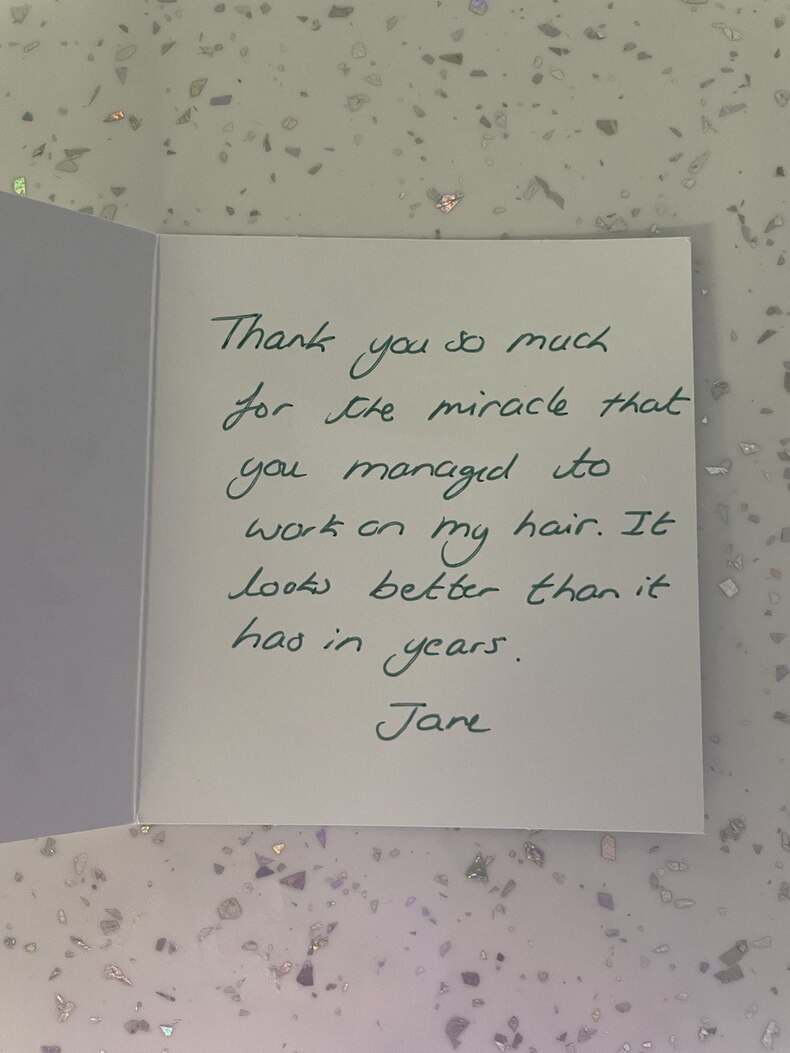 Thank you so much
for the miracle that
you managed to
work on my hair. It
looks better than it
has in years.
Jane